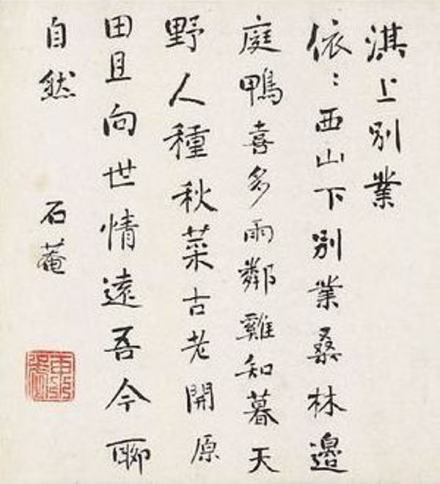 淇上別業
依〻西山下別業桑林邊
庭鴨喜多雨鄰雞知暮天
野人種秋菜古老開原
田且向世情遠吾今聊
自然
石菴